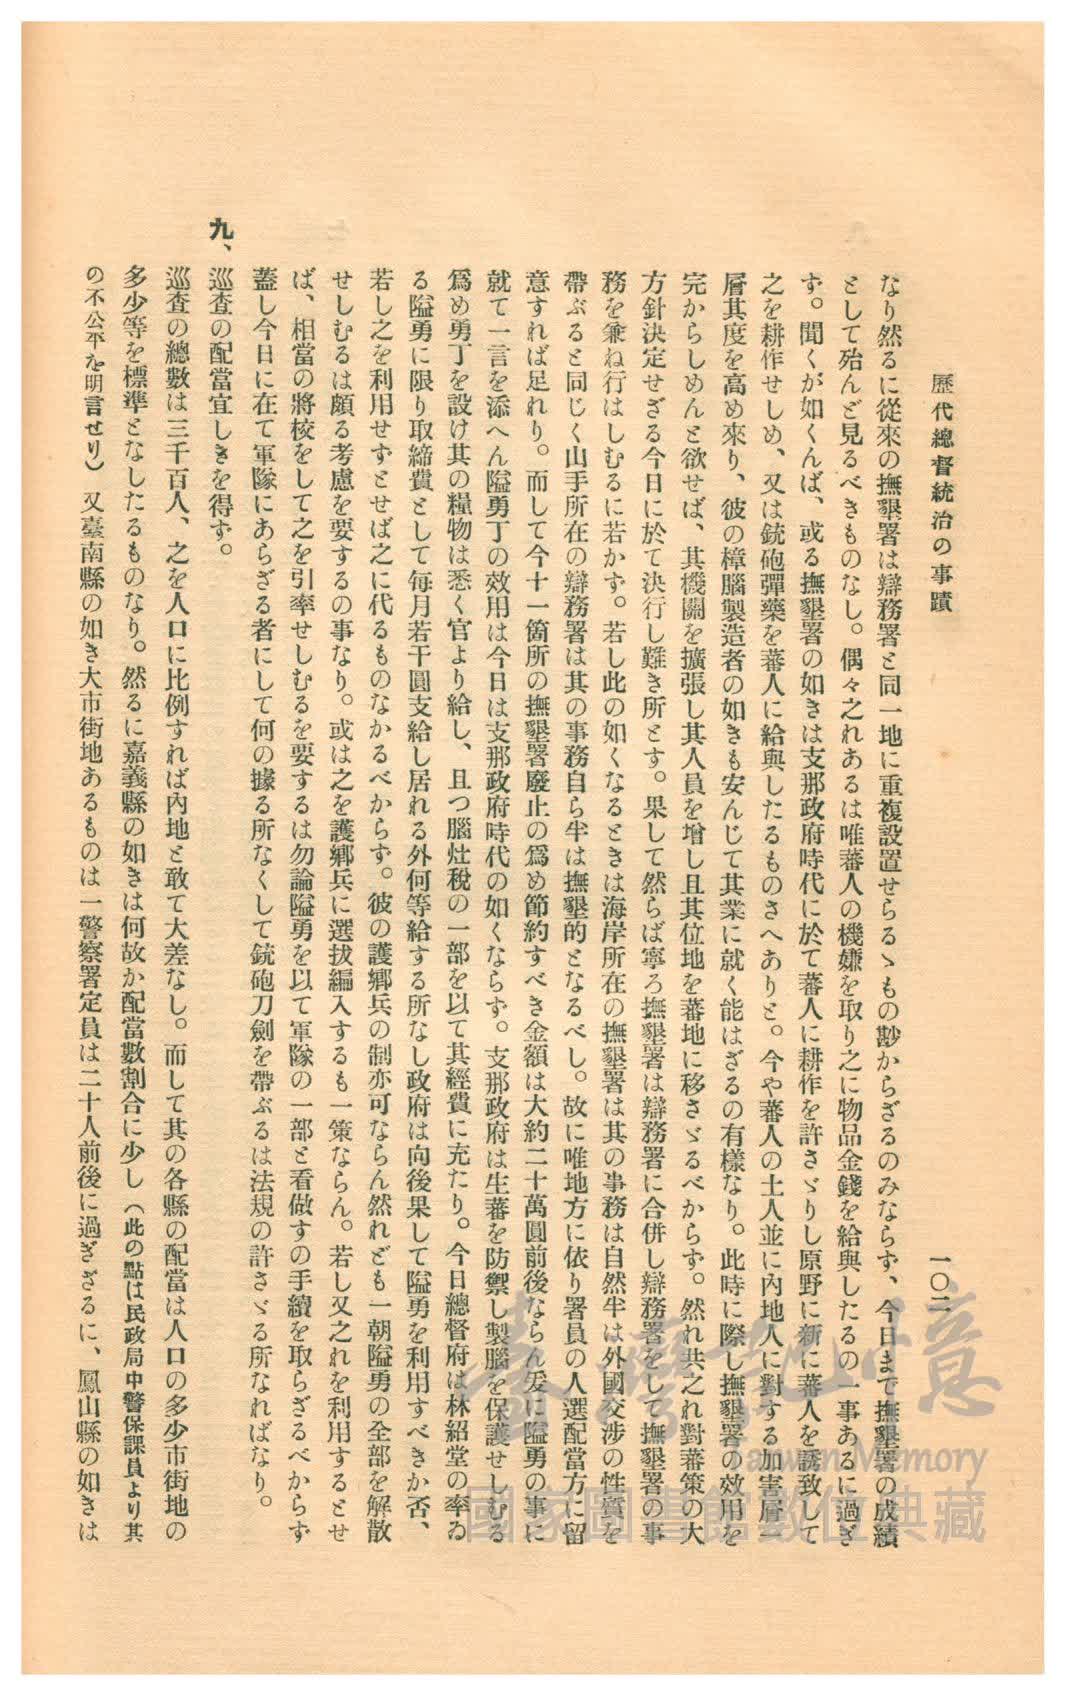 歷代總督統治の事蹟
一〇二
なり然るに從來の撫墾署は辯務署と同一地に重複設置せらるゝもの尠からざるのみならず、今日まで撫墾署の成績
として殆んど見るべきものなし。偶々之れあるは唯蕃人の機嫌を取り之に物品金錢を給與したるの一事あるに過ぎ
ず。聞くが如くんば、或る撫墾署の如きは支那政府時代に於て蕃人に耕作を許さゞりし原野に新に蕃人を誘致して
之を耕作せしめ、又は銃砲彈藥を蕃人に給與したるものさへありと。今や蕃人の土人並に內地人に對する加害層一
層其度を高め來り、彼の樟腦製造者の如きも安んじて其業に就く能はざるの有樣なり。此時に際し撫墾署の效用を
完からしめんと欲せば、其機關を擴張し其人員を增し且其位地を蕃地に移さゞるべからず。然れ共之れ對蕃策の大
方針決定せざる今日に於て決行し難き所とす。果して然らば寧ろ撫墾署は辯務署に合併し辯務署をして撫墾署の事
務を兼ね行はしむるに若かず。若し此の如くなるときは海岸所在の撫墾署は其の事務は自然半は外國交涉の性質を
帶ぶると同じく山手所在の辯務署は其の事務自ら半は撫墾的となるべし。故に唯地方に依り署員の人選配當方に留
意すれば足れり。而して今十一箇所の撫墾署廢止の爲め節約すべき金額は大約二十萬圓前後ならん爰に隘勇の事に
就て一言を添へん隘勇丁の效用は今日は支那政府時代の如くならず。支那政府は生蕃を防禦し製腦を保護せしむる
爲め勇丁を設け其の糧物は悉く官より給し、且つ腦灶稅の一部を以て其經費に充たり。今日總督府は林紹堂の率ゐ
る隘勇に限り取締費として每月若干圓支給し居れる外何等給する所なし政府は向後果して隘勇を利用すべきか否、
若し之を利用せずとせば之に代るものなかるべからず。彼の護鄉兵の制亦可ならん然れども一朝隘勇の全部を解散
せしむるは頗る考慮を要するの事なり。或は之を護鄉兵に選拔編入するも一策ならん。若し又之れを利用するとせ
ば、相當の將校をして之を引率せしむるを要するは勿論隘勇を以て軍隊の一部と看做すの手續を取らざるべからず
蓋し今日に在て軍隊にあらざる者にして何の據る所なくして銃砲刀劍を帶ぶるは法規の許さゞる所なればなり。
九、巡査の配當宜しきを得ず。
巡査の總數は三千百人、之を人口に比例すれば內地と敢て大差なし。而して其の各縣の配當は人口の多少市街地の
多少等を標準となしたるものなり。然るに嘉義縣の如きは何故か配當數割合に少し（此の點は民政局中警保課員より其
の不公平を明言せり）又臺南縣の如き大市街地あるものは一警察署定員は二十人前後に過ぎざるに、鳳山縣の如きは
臺灣記憶
Taiwan Memory
國家圖書館數位典藏